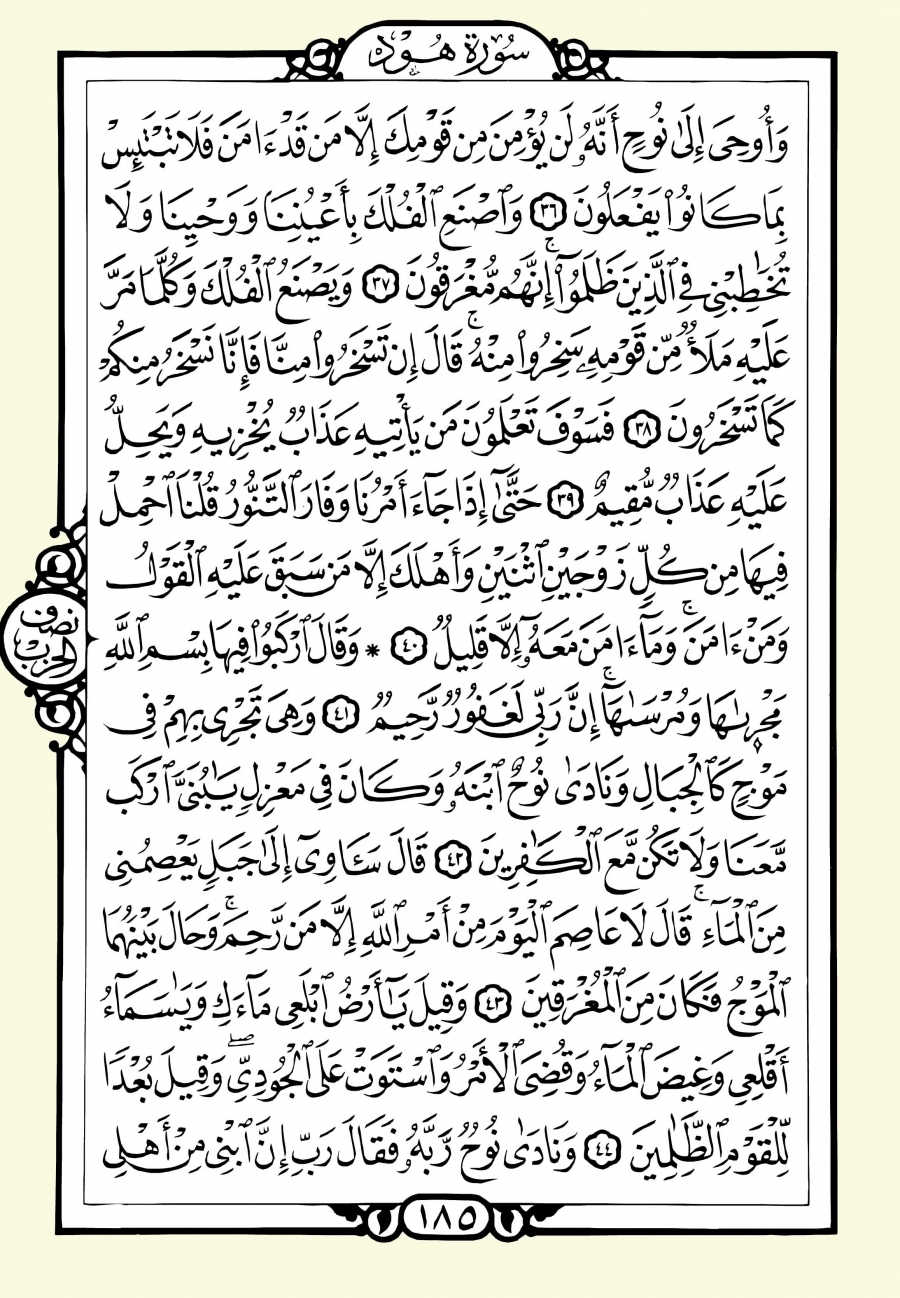 سُورَةُ هُودٍ
وَأُوحِىَ إِلَىٰ نُوحٍ أَنَّهُۥ لَن يُؤْمِنَ مِن قَوْمِكَ إِلَّا مَن قَدْ ءَامَنَ فَلَا تَبْتَئِسْ
بِمَا كَانُوا۟ يَفْعَلُونَ ٣٦ وَٱصْنَعِ ٱلْفُلْكَ بِأَعْيُنِنَا وَوَحْيِنَا وَلَا
تُخَٰطِبْنِى فِى ٱلَّذِينَ ظَلَمُوٓا۟ ۚ إِنَّهُم مُّغْرَقُونَ ٣٧ وَيَصْنَعُ ٱلْفُلْكَ وَكُلَّمَا مَرَّ
عَلَيْهِ مَلَأٌ مِّن قَوْمِهِۦ سَخِرُوا۟ مِنْهُ ۚ قَالَ إِن تَسْخَرُوا۟ مِنَّا فَإِنَّا نَسْخَرُ مِنكُمْ
كَمَا تَسْخَرُونَ ٣٨ فَسَوْفَ تَعْلَمُونَ مَن يَأْتِيهِ عَذَابٌ يُخْزِيهِ وَيَحِلُّ
عَلَيْهِ عَذَابٌ مُّقِيمٌ ٣٩ حَتَّىٰٓ إِذَا جَآءَ أَمْرُنَا وَفَارَ ٱلتَّنُّورُ قُلْنَا ٱحْمِلْ
فِيهَا مِن كُلٍّ زَوْجَيْنِ ٱثْنَيْنِ وَأَهْلَكَ إِلَّا مَن سَبَقَ عَلَيْهِ ٱلْقَوْلُ
وَمَنْ ءَامَنَ ۚ وَمَآ ءَامَنَ مَعَهُۥٓ إِلَّا قَلِيلٌ ٤٠ * وَقَالَ ٱرْكَبُوا۟ فِيهَا بِسْمِ ٱللَّهِ
مَجْر۪ىٰهَا وَمُرْسَىٰهَآ ۚ إِنَّ رَبِّى لَغَفُورٌ رَّحِيمٌ ٤١ وَهِىَ تَجْرِى بِهِمْ فِى
مَوْجٍ كَٱلْجِبَالِ وَنَادَىٰ نُوحٌ ٱبْنَهُۥ وَكَانَ فِى مَعْزِلٍ يَٰبُنَىَّ ٱرْكَب
مَّعَنَا وَلَا تَكُن مَّعَ ٱلْكَٰفِرِينَ ٤٢ قَالَ سَـَٔاوِىٓ إِلَىٰ جَبَلٍ يَعْصِمُنِى
مِنَ ٱلْمَآءِ ۚ قَالَ لَا عَاصِمَ ٱلْيَوْمَ مِنْ أَمْرِ ٱللَّهِ إِلَّا مَن رَّحِمَ ۚ وَحَالَ بَيْنَهُمَا
ٱلْمَوْجُ فَكَانَ مِنَ ٱلْمُغْرَقِينَ ٤٣ وَقِيلَ يَٰٓأَرْضُ ٱبْلَعِى مَآءَكِ وَيَٰسَمَآءُ
أَقْلِعِى وَغِيضَ ٱلْمَآءُ وَقُضِىَ ٱلْأَمْرُ وَٱسْتَوَتْ عَلَى ٱلْجُودِىِّ ۖ وَقِيلَ بُعْدًا
لِّلْقَوْمِ ٱلظَّٰلِمِينَ ٤٤ وَنَادَىٰ نُوحٌ رَّبَّهُۥ فَقَالَ رَبِّ إِنَّ ٱبْنِى مِنْ أَهْلِى
نصف
الحزب
١٨٥